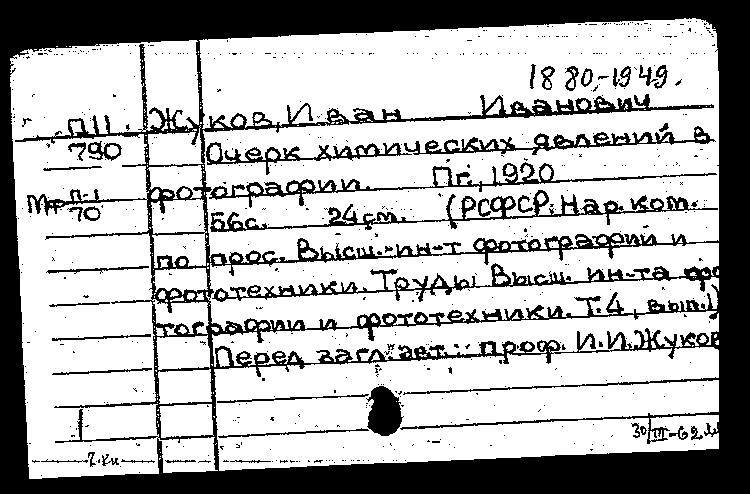 1880-1949.
П11. Жуков, Иван Иванович
790 Очерк химических явлений в
фотографии. Пг., 1920
П-1
70
56с. 24см. (РСФСР. Нар. ком.
по прос. Высш. ин-т фотографии и
фототехники. Труды Высш. ин-та фо
тографии и фототехники. Т.4, вып.1)
Перед загл. авт.: проф. И.И. Жуков
30/III-62